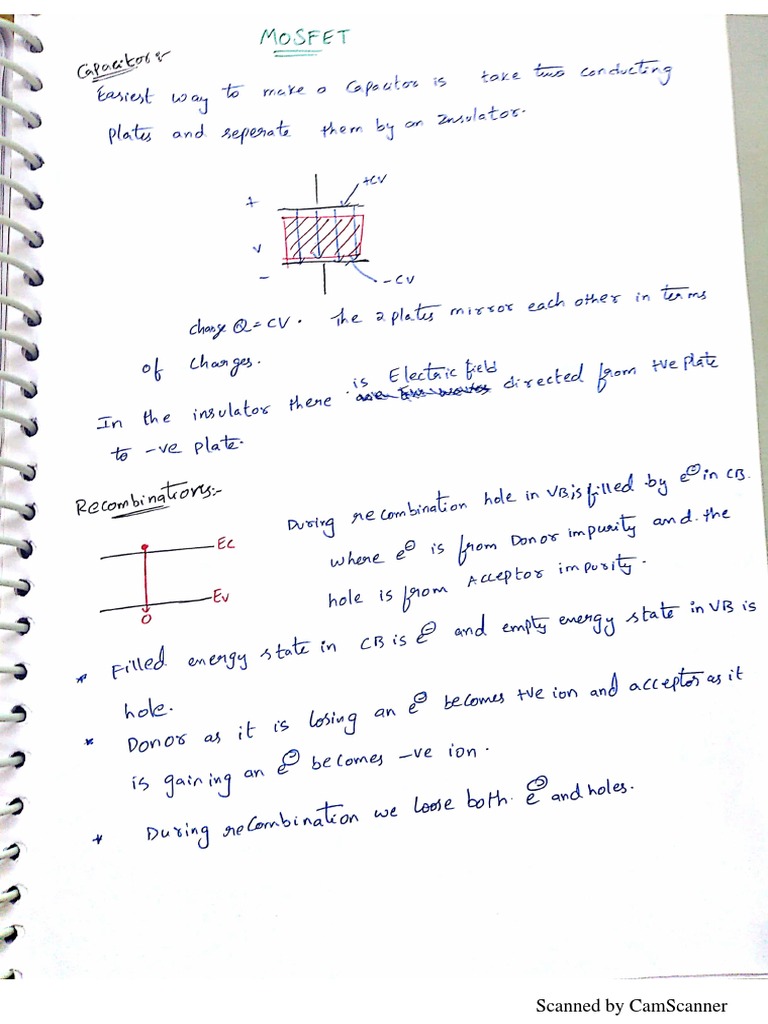 MOSFET
Capacitor:-
Easiest way to make a capacitor is take two conducting
plates and seperate them by an Insulator.
+CV
+
V
-
-CV
charge Q=CV. The 2 plates mirror each other in terms
of charges.
In the insulator there is Electric field directed from +ve plate
to -ve plate.
Recombinations:-
During recombination hole in VB is filled by e⊖ in CB.
where e⊖ is from Donor impurity and the
hole is from Acceptor impurity.
EC
EV
* Filled energy state in CB is e⊖ and empty energy state in VB is
hole.
* Donor as it is losing an e⊖ becomes +ve ion and acceptor as it
is gaining an e⊖ becomes -ve ion.
* During recombination we loose both e⊖ and holes.
Scanned by CamScanner